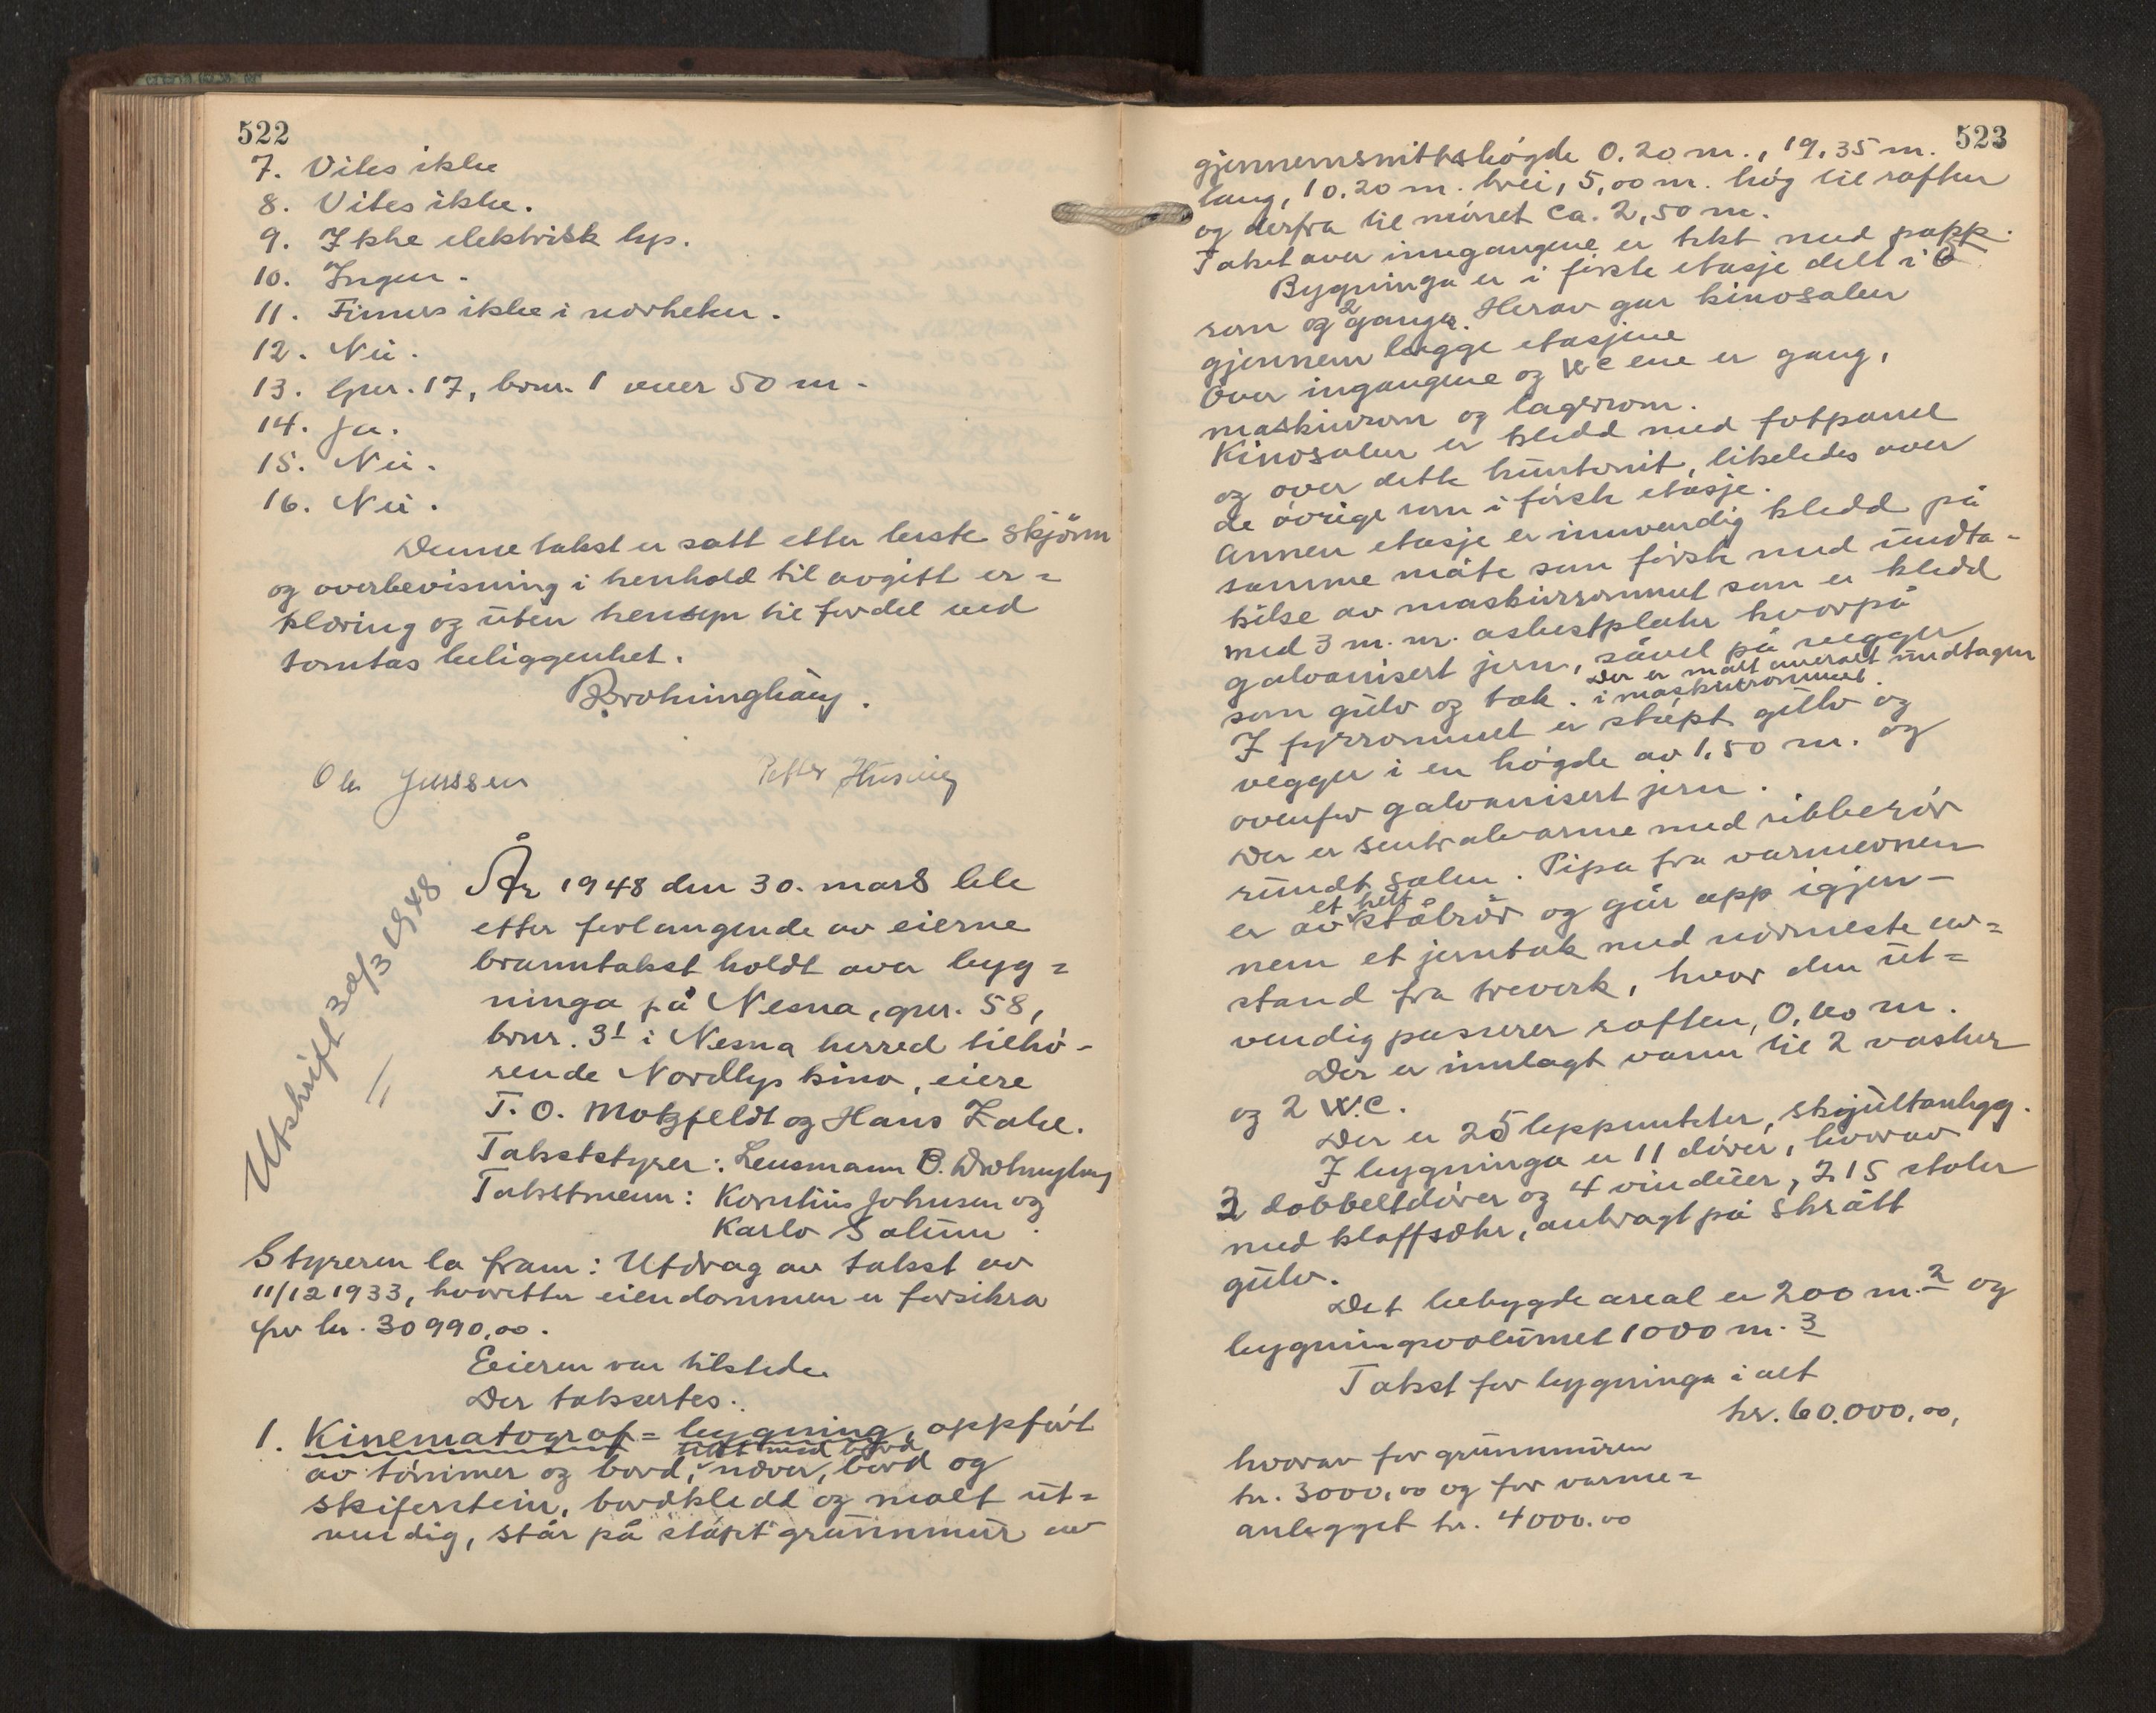 522
7. Vites ikke
8. Vites ikke.
9. Ikke elektrisk lys.
10. Ingen.
11. Finnes ikke i nærheten.
12. Nei.
13. Gnr. 17, bnr. 1 over 50 m.
14. Ja.
15. Nei.
16. Nei.
Denne takst er satt etter beste skjönn
og overbevisning i henhold til avgitt er=
klæring og uten hensyn til fordel ved
tomtas beliggenhet.
Ole Jenssen Petter Husing
Utskrift 30/3 1948
År 1948 den 30. mars ble
etter forlangende av eierne
branntakst holdt over byg=
ninga på Nesna, gnr. 58,
bnr. 31 i Nesna herred tilhö-
rende Nordlys kino, eiere
T. O. Motzfeldt og Hans Zahl.
Takststyrer: Lensmann B.
Takstmenn: Kornelius Johnsen og
Karlo Solum.
Styreren la fram: Utdrag av takst av
11/12 1933, hvoretter eiendommen er forsikra
for kr. 30990,00.
Eieren var tilstede.
Der taksertes:
1. Kinematograf=bygning, oppfört
tekt med bord,
av tömmer og bord, næver, bord og
skiferstein, bordkledt og malt ut=
vendig, står på stöpt grunnmur av
523
gjennemsnittshögde 0.20 m., 19.35 m.
lang, 10.20 m. brei, 5,00 m. hög til raften
og derfra til mönet ca. 2,50 m.
Taket over inngangene er tekt med papp.
Bygninga er i förste etasje delt i 6
rom og 2 ganger. Herav går kinosalen
gjennem begge etasjene
Över ingangene og WC ene er gang,
maskinrom og lagerrom.
Kinosalen er kledd med fotpanel
og over dette huntonit, likeledes over
de övrige rom i förste etasje.
Annen etasje er innvendig kledd på
samme måte som förste med undta-
kelse av maskinrommet som er kledd
med 3 m.m. asbestplater hvorpå
galvanisert jern, såvel på vegger
som gulv og tak. Der er malt overalt undtagen
i maskinrommet.
I fyrrommet er stöpt gulv og
vegger i en högde av 1,50 m. og
ovenfor galvanisert jern.
Der er sentralvarme med ribberör
rundt salen. Pipa fra varmeovnen
er av et helt stålrör og går opp igjen-
nem et jerntak med nærmeste av=
stand fra treverk, hvor den ut=
vendig passerer raften, 0,60 m.
Der er innlagt vann til 2 vasker
og 2 W.C.
Der er 25 lyspunkter, skjultanlegg.
I bygninga er 11 dörer, hvorav
3 dobbeltdörer og 4 vinduer, 215 stoler
med klaffsæter, anbragt på skrått
gulv.
Det bebygde areal er 200 m.2 og
bygningsvolumet 1000 m.3
Takst for bygninga i alt
kr. 60.000,00,
hvorav for grunnmuren
kr. 3000,00 og for varme=
anlegget kr. 4000.00